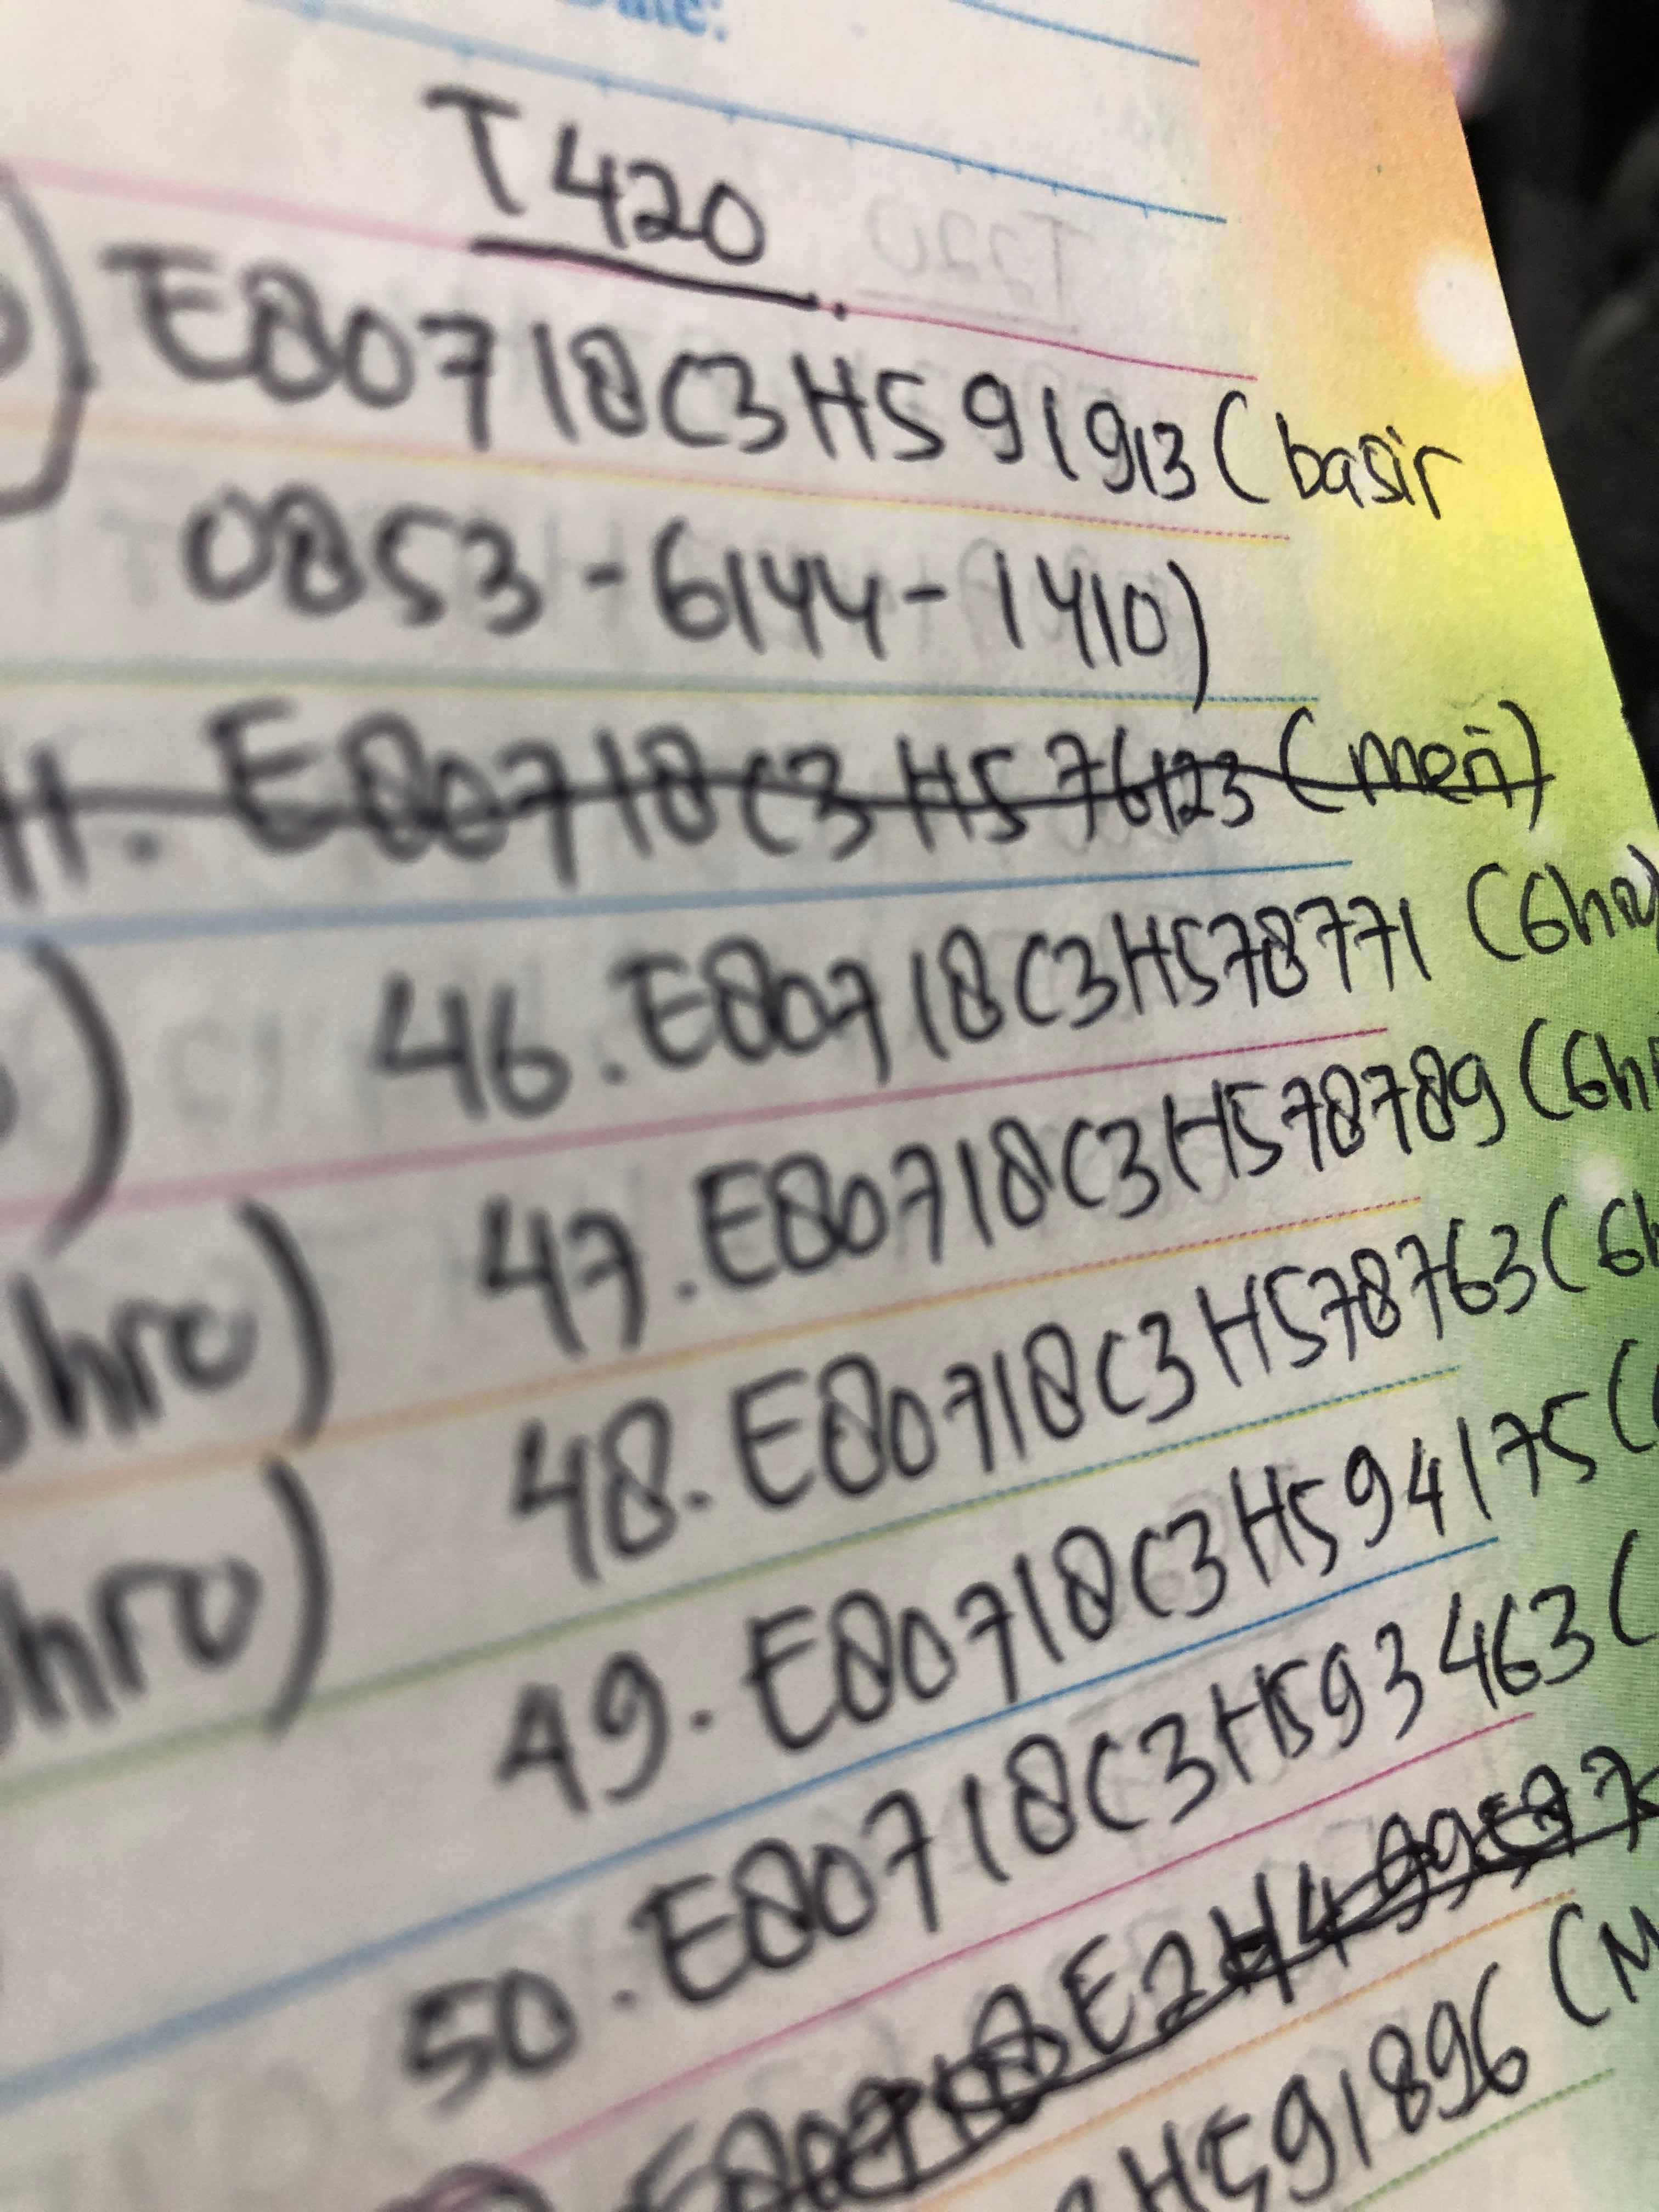 Date:
T420
E80718C3H591913 (basir
0853-6144-1410)
11. E80718C3H576123 (meri)
46. E80718C3H578771 (Ghro)
47. E80718C3H578789 (Ghr
hro)
48. E80718C3H578763 (Gh
hro)
49. E80718C3H594175 (
50. E80718C3H593463 (
H591896 (M